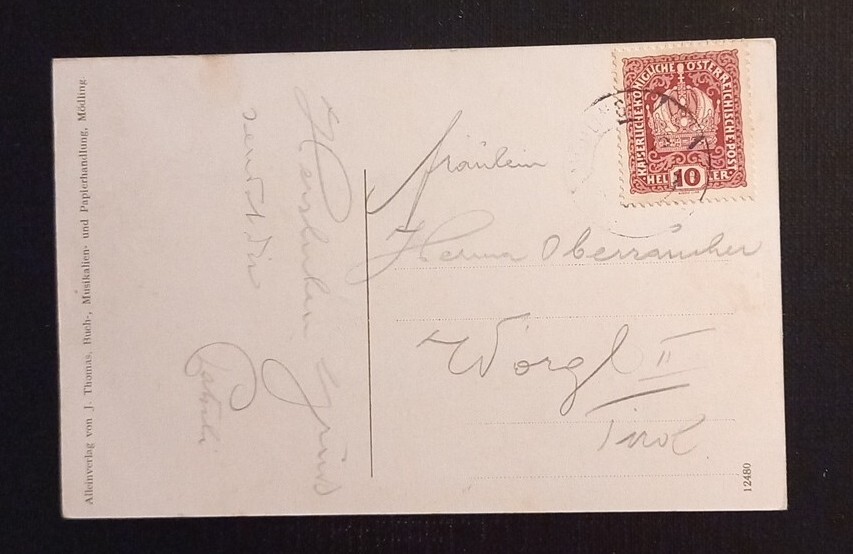 Alleinverlag von J. Thomas, Buch-, Musikalien- und Papierhandlung, Mödling.
Herzlichen Gruß
sendet Dir
Fräulein
Herma Oberrauncher
Wörgl II
Tirol.
KAISERLICHE KÖNIGLICHE ÖSTERREICHISCHE POST
HELLER
10
12480